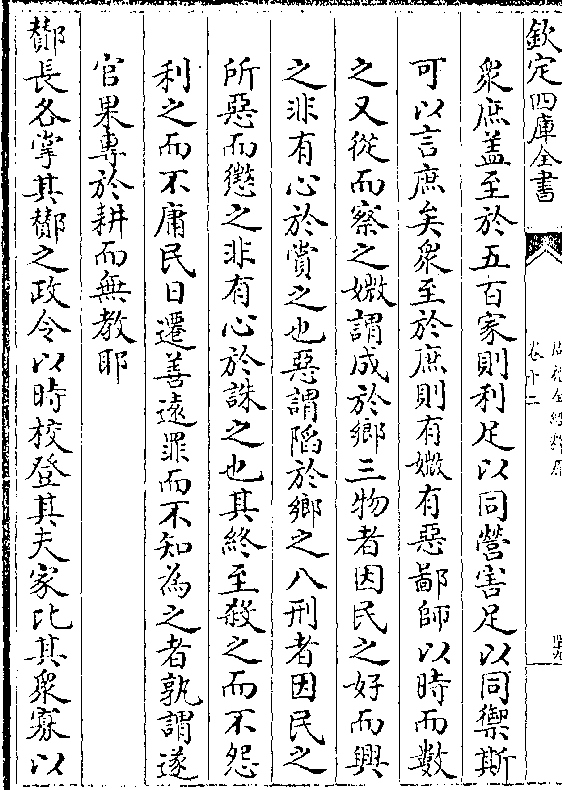 欽定四庫全書
周禮全經釋原
卷十二
衆庶盖至於五百家則利足以同營害足以同禦斯
可以言庶矣衆至於庶則有媺有惡鄙師以時而數
之又從而察之媺謂成於鄉三物者因民之好而興
之非有心於賞之也惡謂䧟於鄉之八刑者因民之
所惡而懲之非有心於誅之也其終至殺之而不怨
利之而不庸民日遷善遠罪而不知為之者孰謂遂
官果專於耕而無教耶
酇長各掌其酇之政令以時校登其夫家比其衆寡以